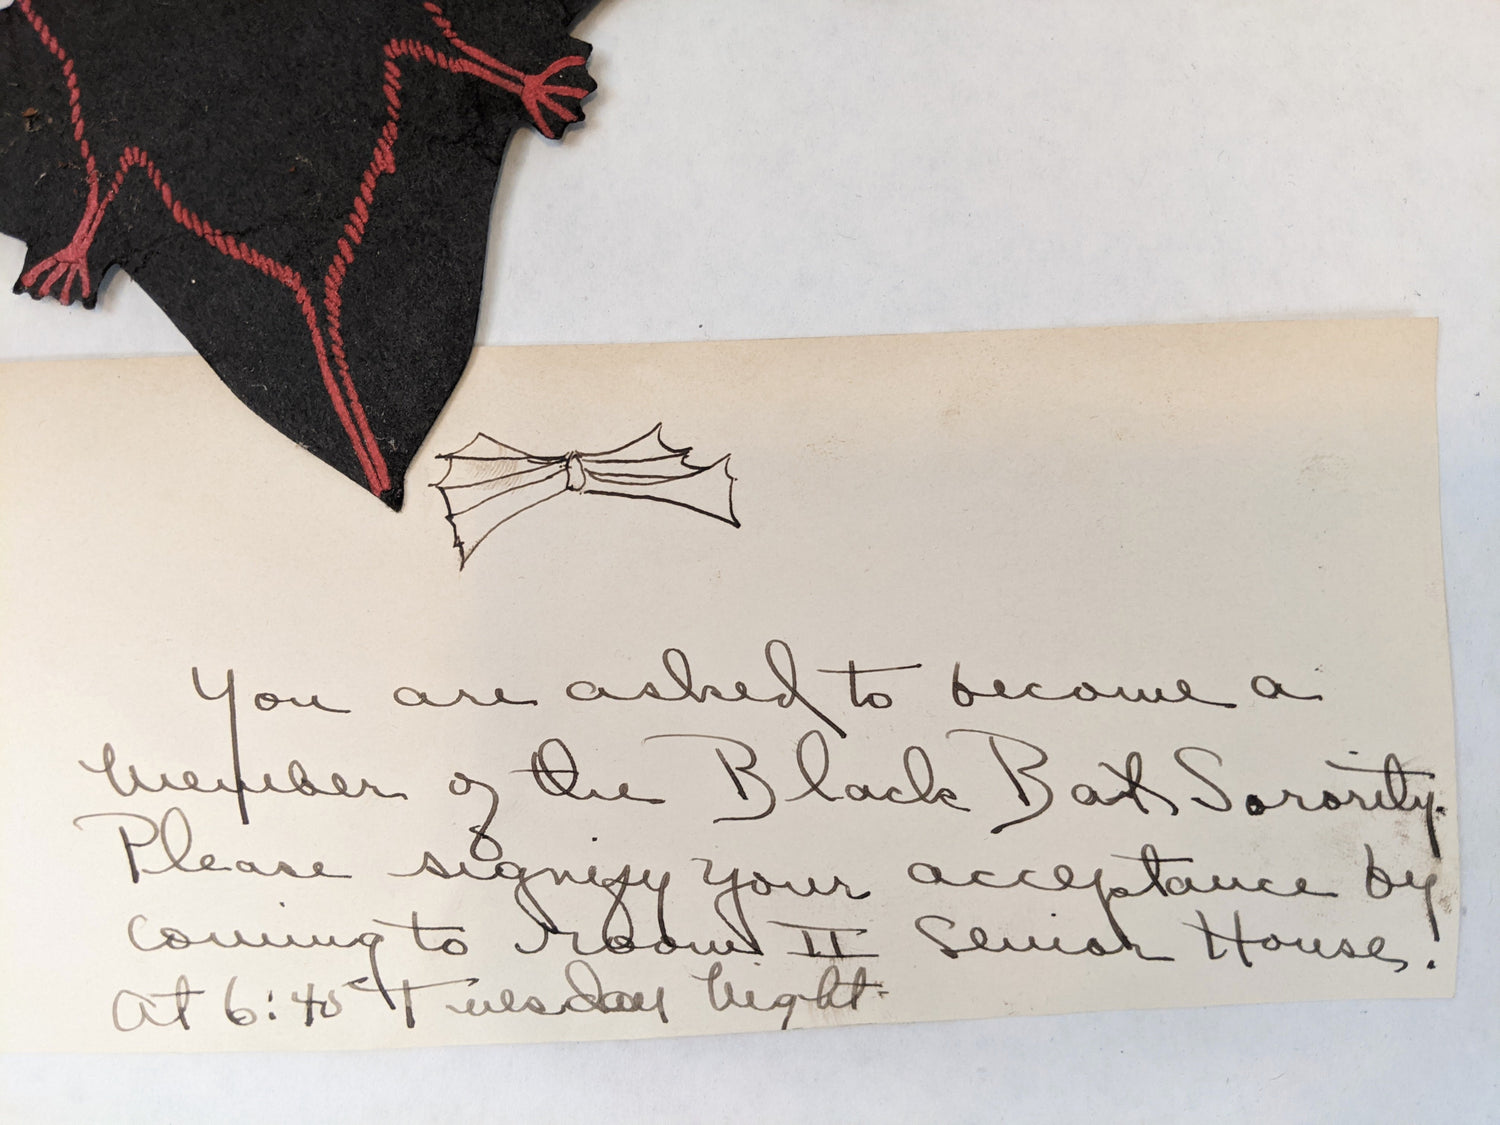 You are asked to become a
member of the Black Bat Sorority.
Please signify your acceptance by
coming to room II Senior House.
At 6:45 Tuesday night.